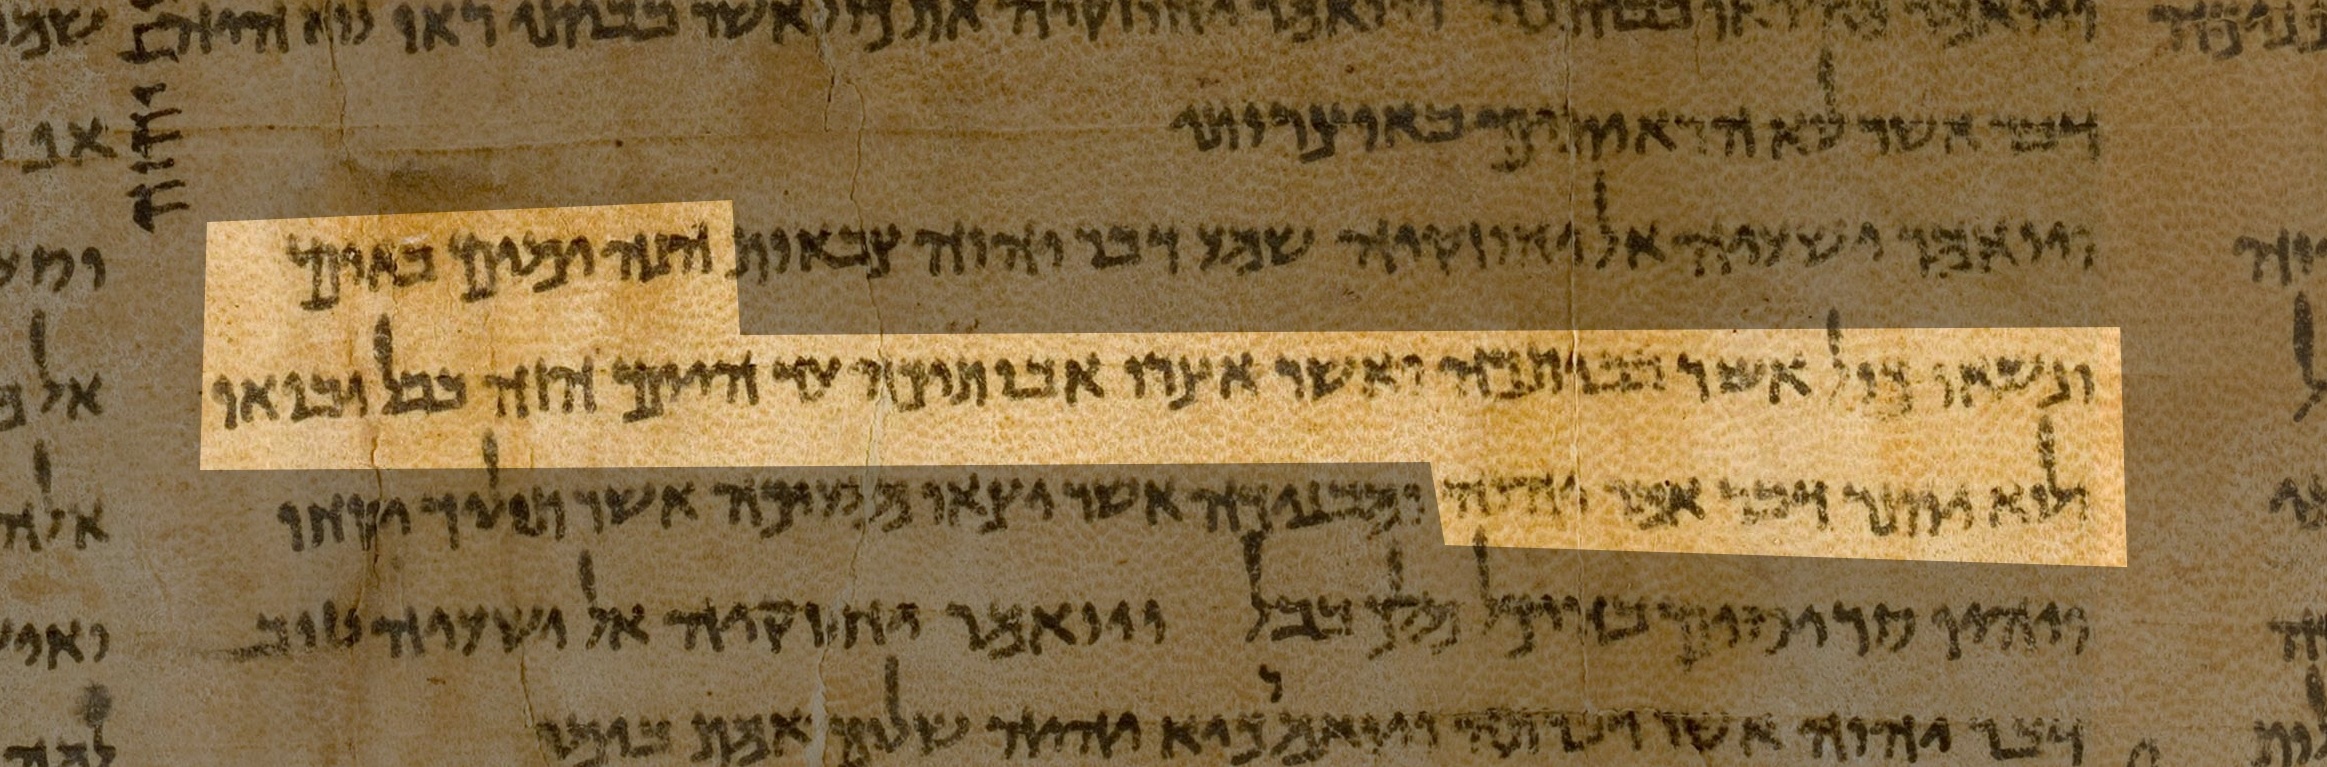 ויואמר מה ראו בביתכה ויואמר יחוזקיה את כול אשר בביתי ראו לוא היה
דבר אשר לוא הראיתים באוצרותי
ויואמר ישעיה אל יחוזקיה שמע דבר יהוה צבאות הנה ימים באים
ונשאו כול אשר בביתכה ואשר אצרו אבותיכה עד היום הזה בבל יבואו
ולוא יותר דבר אמר יהוה ומבניכה אשר יצאו ממעיכה אשר תוליד יקחו
ויהיו סריסים בהיכל מלך בבל ויואמר יחוזקיה אל ישעיה טוב
דבר יהוה אשר דברתה ויואמר כיא יהיה שלום אמת בימי